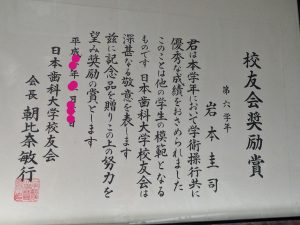 校友会奨励賞
第六学年
岩本圭司
君は本学年において学術操行共に
優秀な成績をおさめられました
このことは他の学生の模範となる
ものです 日本歯科大学校友会は
深甚なる敬意を表します
茲に記念品を贈りこの上の努力を
望み奨励の賞とします
平成 年 月 日
日本歯科大学校友会
会長 朝比奈敏行